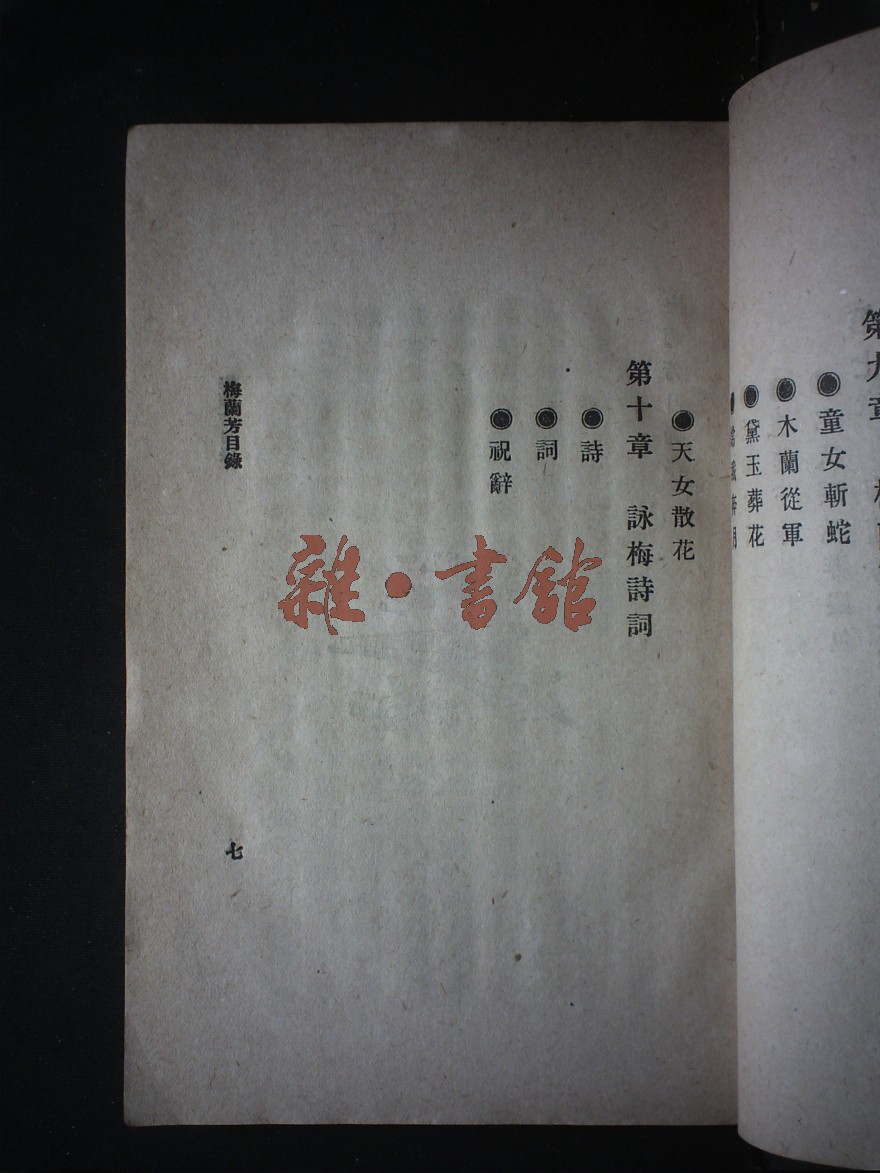 第九章
●童女斬蛇
●木蘭從軍
●黛玉葬花
●天女散花
第十章 詠梅詩詞
●詩
●詞
●祝辭
梅蘭芳目錄
七
雜·書館